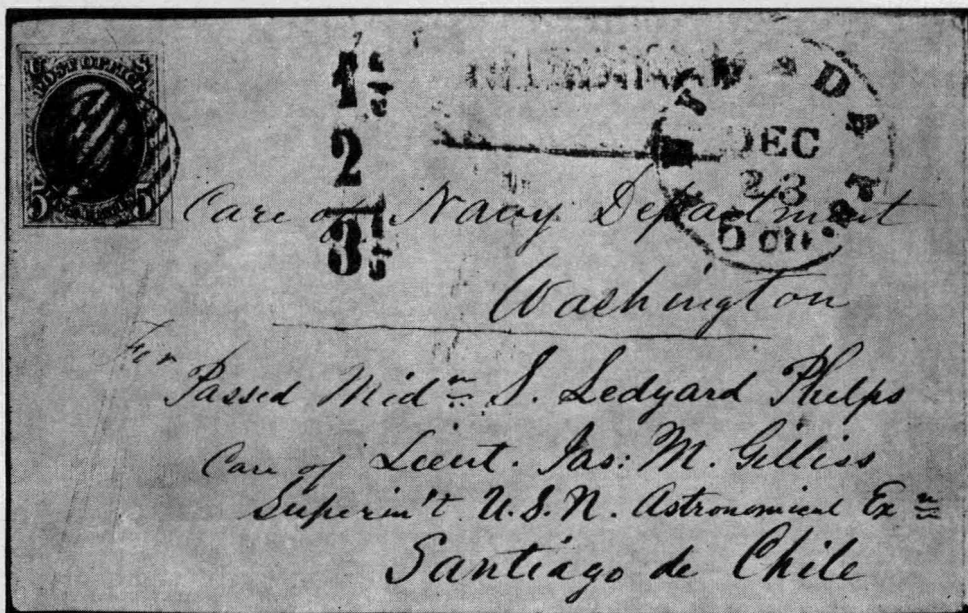 U S
POST OFFICE
5 5
1½
2
3½
DEC
23
5 cts.
Care of Navy Department
Washington
For
Passed Midⁿ S. Ledyard Phelps
Care of Lieut. Jas: M. Gilliss
Superin't U.S.N. Astronomical Exⁿ
Santiago de Chile